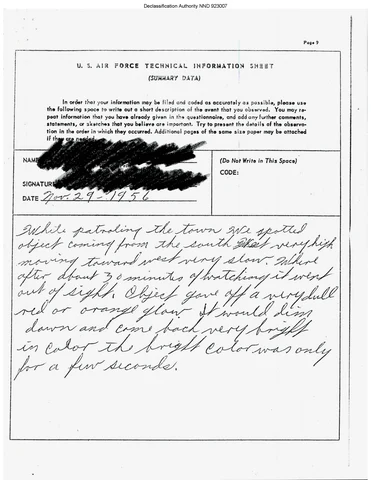 Declassification Authority NND 923007
Page 9
U. S. AIR FORCE TECHNICAL INFORMATION SHEET
(SUMMARY DATA)
In order that your information may be filed and coded as accurately as possible, please use
the following space to write out a short description of the event that you observed. You may re-
peat information that you have already given in the questionnaire, and add any further comments,
statements, or sketches that you believe are important. Try to present the details of the observa-
tion in the order in which they occurred. Additional pages of the same size paper may be attached
if they are needed.
NAME
(Do Not Write in This Space)
CODE:
SIGNATURE
DATE Nov. 29-1956
While patroling the town We spotted
object coming from the south very high
moving toward west very slow. Where
after about 30 minutes of watching it went
out of sight. Object gave off a very dull
red or orange glow it would dim
down and come back very bright
in color the bright color was only
for a few seconds.